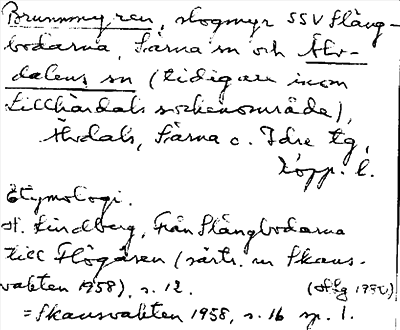 Brunnmyren, skogmyr SSV Stäng-
bodarna, Särna sn och Älv-
dalens sn (tidigare inom
Lillhärdals sockenområde),
Älvdals, Särna o. Idre tg,
Kopp. l.
Etymologi.
H. Lindberg, Från Stängbodarna
till Flögåsen (särtr. ur Skans-
vakten 1958), s. 12.
= Skansvakten 1958, s. 16 sp. 1.